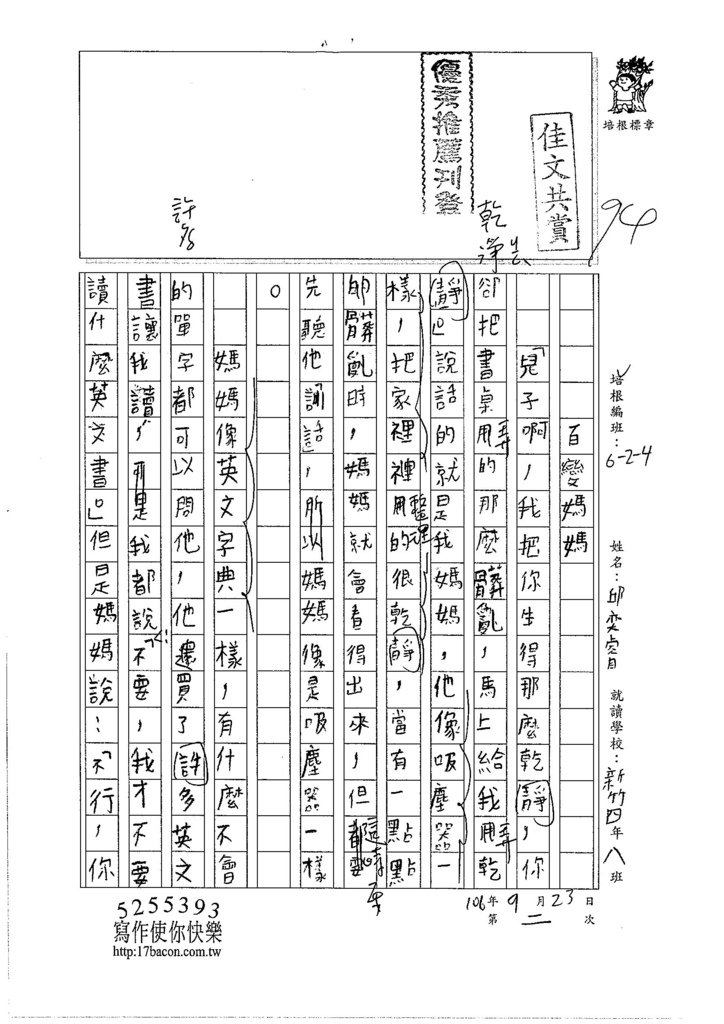 培根標章
94
佳文共賞
優秀推薦刊登
乾淨
許多
培根編班：6-2-4
姓名：邱奕睿
就讀學校：新竹四年八班
106年9月23日
第二次
百變媽媽
「兒子啊，我把你生得那麼乾靜，你
卻把書桌用弄的那麼髒亂，馬上給我用弄乾
靜。」說話的就是我媽媽，他像吸塵器一
樣，把家裡裡用整理的很乾靜，當有一點點
的髒亂時，媽媽就會看得出來，但都這時要
先聽他說話，所以媽媽像是吸塵器一樣
。
媽媽像英文字典一樣，有什麼不會
的單字都可以問他，他還買了許多英文
書讓我讀，可是我都說：「不要，我才不要
讀什麼英文書。」但是媽媽說：「不行，你
5255393
寫作使你快樂
http:17bacon.com.tw